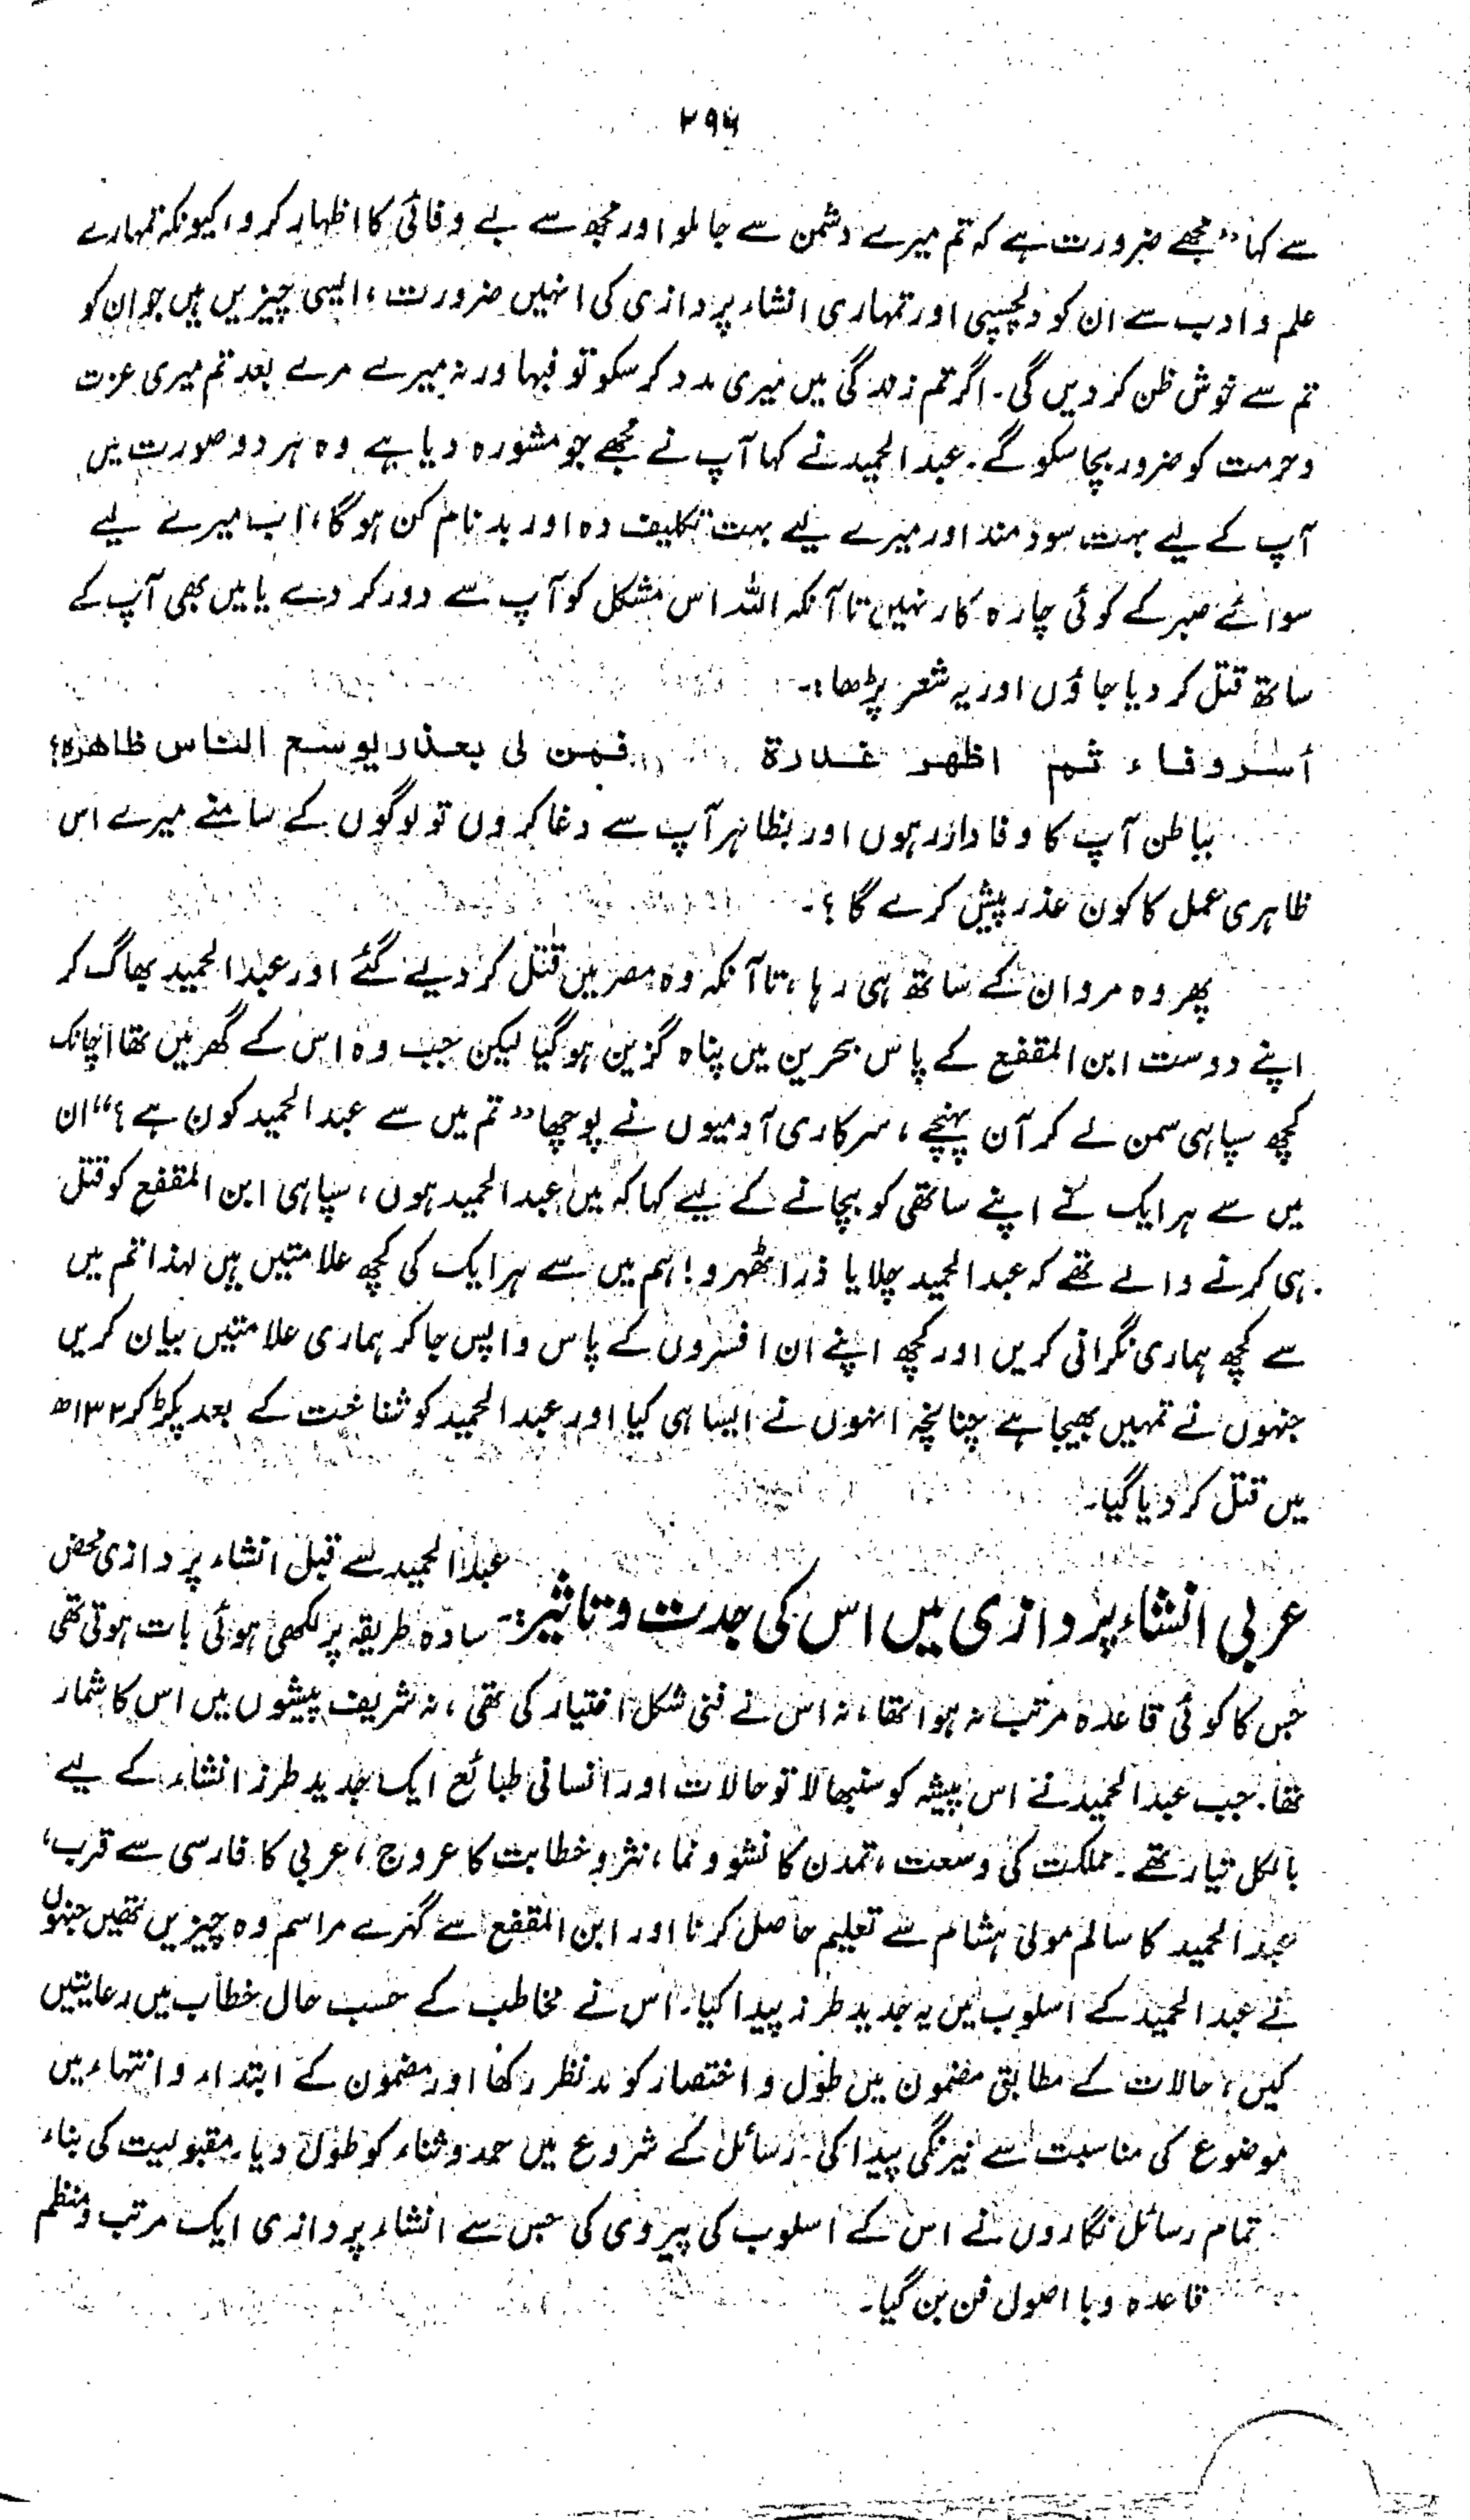 ۲۹۶
سے کہا ”مجھے ضرورت ہے کہ تم میرے دشمن سے جا ملو اور مجھ سے بے وفائی کا اظہار کرو، کیونکہ تمہارے
علم و ادب سے ان کو دلچسپی اور تمہاری انشاء پردازی کی انہیں ضرورت، ایسی چیزیں ہیں جو ان کو
تم سے خوش ظن کر دیں گی۔ اگر تم زندگی میں میری مدد کر سکو تو فبہا ورنہ میرے مرے بعد تم میری عزت
و حرمت کو ضرور بچا سکو گے۔ عبدالحمید نے کہا آپ نے مجھے جو مشورہ دیا ہے وہ ہر دو صورت میں
آپ کے لیے بہت سود مند اور میرے لیے بہت تکلیف دہ اور بدنام کن ہو گا، اب میرے لیے
سوائے صبر کے کوئی چارہ کار نہیں تا آنکہ اللہ اس مشکل کو آپ سے دور کر دے یا میں بھی آپ کے
ساتھ قتل کر دیا جاؤں اور یہ شعر پڑھا:۔
أسر وفاء ثم اظهر غدرة فمن لی بعذر یوسع الناس ظاهره؟
بباطن آپ کا وفادار ہوں اور بظاہر آپ سے دغا کروں تو لوگوں کے سامنے میرے اس
ظاہری عمل کا کون عذر پیش کرے گا؟۔
پھر وہ مروان کے ساتھ ہی رہا، تا آنکہ وہ مصر میں قتل کر دیے گئے اور عبدالحمید بھاگ کر
اپنے دوست ابن المقفع کے پاس بحرین میں پناہ گزین ہو گیا لیکن جب وہ اس کے گھر میں تھا اچانک
کچھ سپاہی سمن لے کر آن پہنچے، سرکاری آدمیوں نے پوچھا ”تم میں سے عبدالحمید کون ہے؟“ ان
میں سے ہر ایک نے اپنے ساتھی کو بچانے کے لیے کہا کہ میں عبدالحمید ہوں، سپاہی ابن المقفع کو قتل
ہی کرنے والے تھے کہ عبدالحمید چلایا ذرا ٹھہرو! ہم میں سے ہر ایک کی کچھ علامتیں ہیں لہذا تم میں
سے کچھ ہماری نگرانی کریں اور کچھ اپنے ان افسروں کے پاس واپس جا کر ہماری علامتیں بیان کریں
جنہوں نے تمہیں بھیجا ہے چنانچہ انہوں نے ایسا ہی کیا اور عبدالحمید کو شناخت کے بعد پکڑ کر ۱۳۲ھ
میں قتل کر دیا گیا۔
عربی انشاء پردازی میں اس کی جدت و تاثیر:۔ عبدالحمید سے قبل انشاء پردازی محض
سادہ طریقہ پر لکھی ہوئی بات ہوتی تھی
جس کا کوئی قاعدہ مرتب نہ ہوا تھا، نہ اس نے فنی شکل اختیار کی تھی، نہ شریف پیشوں میں اس کا شمار
تھا۔ جب عبدالحمید نے اس پیشہ کو سنبھالا تو حالات اور انسانی طبائع ایک جدید طرز انشاء کے لیے
بالکل تیار تھے۔ مملکت کی وسعت، تمدن کا نشو و نما، نثر و خطابت کا عروج، عربی کا فارسی سے قرب،
عبدالحمید کا سالم مولیٰ ہشام سے تعلیم حاصل کرنا اور ابن المقفع سے گہرے مراسم وہ چیزیں تھیں جنہوں
نے عبدالحمید کے اسلوب میں یہ جدید طرز پیدا کیا۔ اس نے مخاطب کے حسب حال خطاب میں رعایتیں
کیں، حالات کے مطابق مضمون میں طول و اختصار کو مدنظر رکھا اور مضمون کے ابتداء و انتہاء میں
موضوع کی مناسبت سے نیرنگی پیدا کی۔ رسائل کے شروع میں حمد و ثناء کو طول دیا۔ مقبولیت کی بناء
تمام رسائل نگاروں نے اس کے اسلوب کی پیروی کی جس سے انشاء پردازی ایک مرتب و منظم
قاعدہ و با اصول فن بن گیا۔